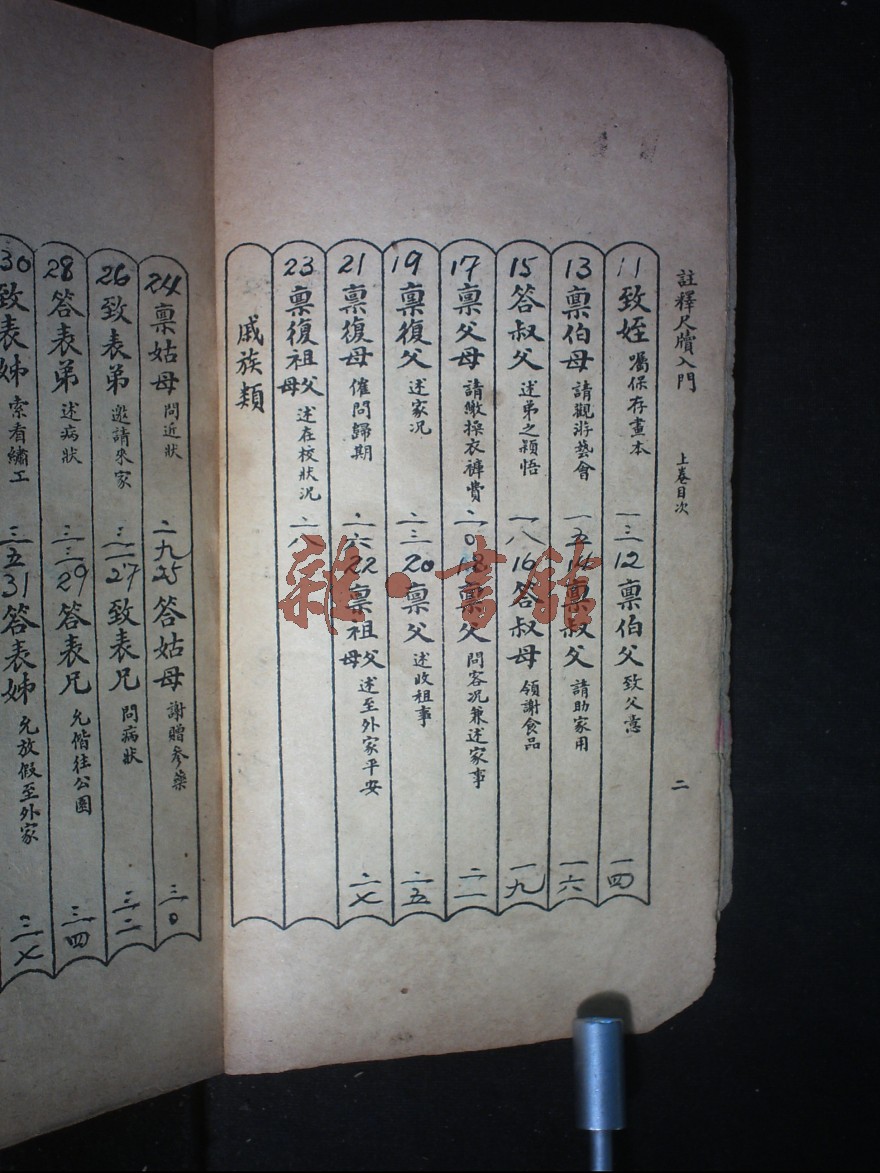 註釋尺牘入門 上卷目次 二
11 致姪 囑保存畫本 一三 12 禀伯父 致父意 一四
13 禀伯母 請觀游藝會 一五 14 禀叔父 請助家用 一六
15 答叔父 述弟之穎悟 一八 16 答叔母 領謝食品 一九
17 禀父母 請繳操衣褲費 二0 18 禀父 問客况兼述家事 二一
19 禀復父 述家况 二三 20 禀父 述收租事 二五
21 禀復母 催問歸期 二六 22 禀祖父母 述至外家平安 二七
23 禀復祖父母 述在校狀况 二八
戚族類
24 禀姑母 問近狀 二九 25 答姑母 謝贈參藥 三0
26 致表弟 邀請來家 三一 27 致表兄 問病狀 三二
28 答表弟 述病狀 三三 29 答表兄 允偕往公園 三四
30 致表姊 索看繡工 三五 31 答表姊 允放假至外家 三七
雜·書館